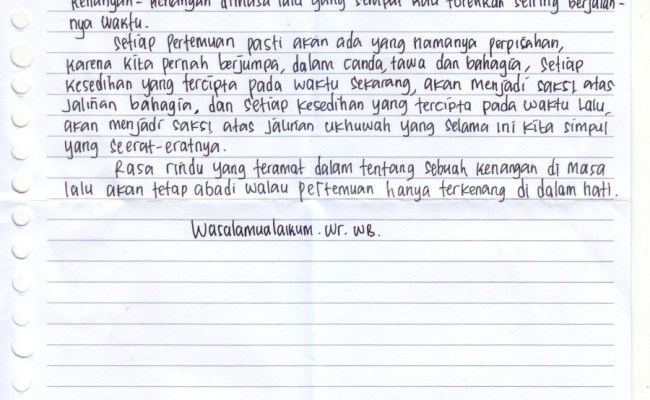 kenangan-kenangan dimasa lalu yang sempat kau torehkan seiring berjalan-
nya waktu.
Setiap pertemuan pasti akan ada yang namanya perpisahan,
karena kita pernah berjumpa, dalam canda, tawa dan bahagia, setiap
kesedihan yang tercipta pada waktu sekarang, akan menjadi saksi atas
jalinan bahagia, dan setiap kesedihan yang tercipta pada waktu lalu,
akan menjadi saksi atas jalinan ukhuwah yang selama ini kita simpul
yang seerat-eratnya.
Rasa rindu yang teramat dalam tentang sebuah kenangan di masa
lalu akan tetap abadi walau pertemuan hanya terkenang di dalam hati.
Wasalamualaikum. Wr. WB.